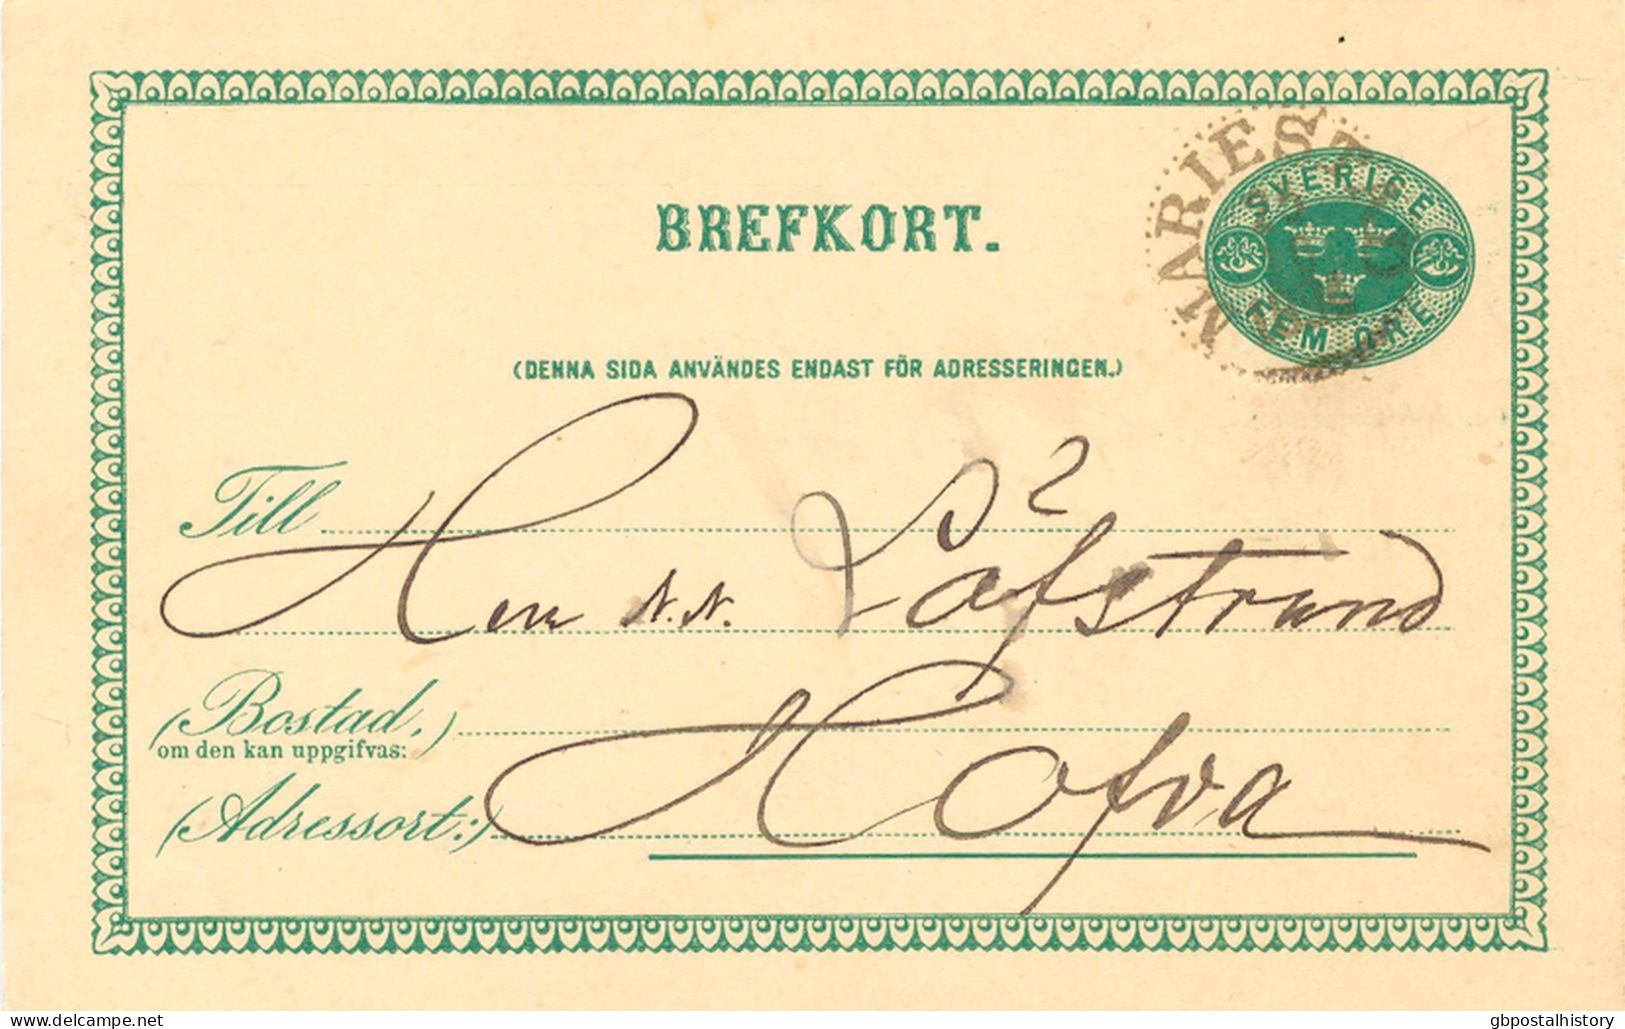 BREFKORT.
MARIEST
SVERIGE
FEM ÖRE
(DENNA SIDA ANVÄNDES ENDAST FÖR ADRESSERINGEN.)
Till
Herr N. N. Löfstrand
(Bostad,)
om den kan uppgifvas:
(Adressort:)
Hofva
delcampe.net
gbpostalhistory